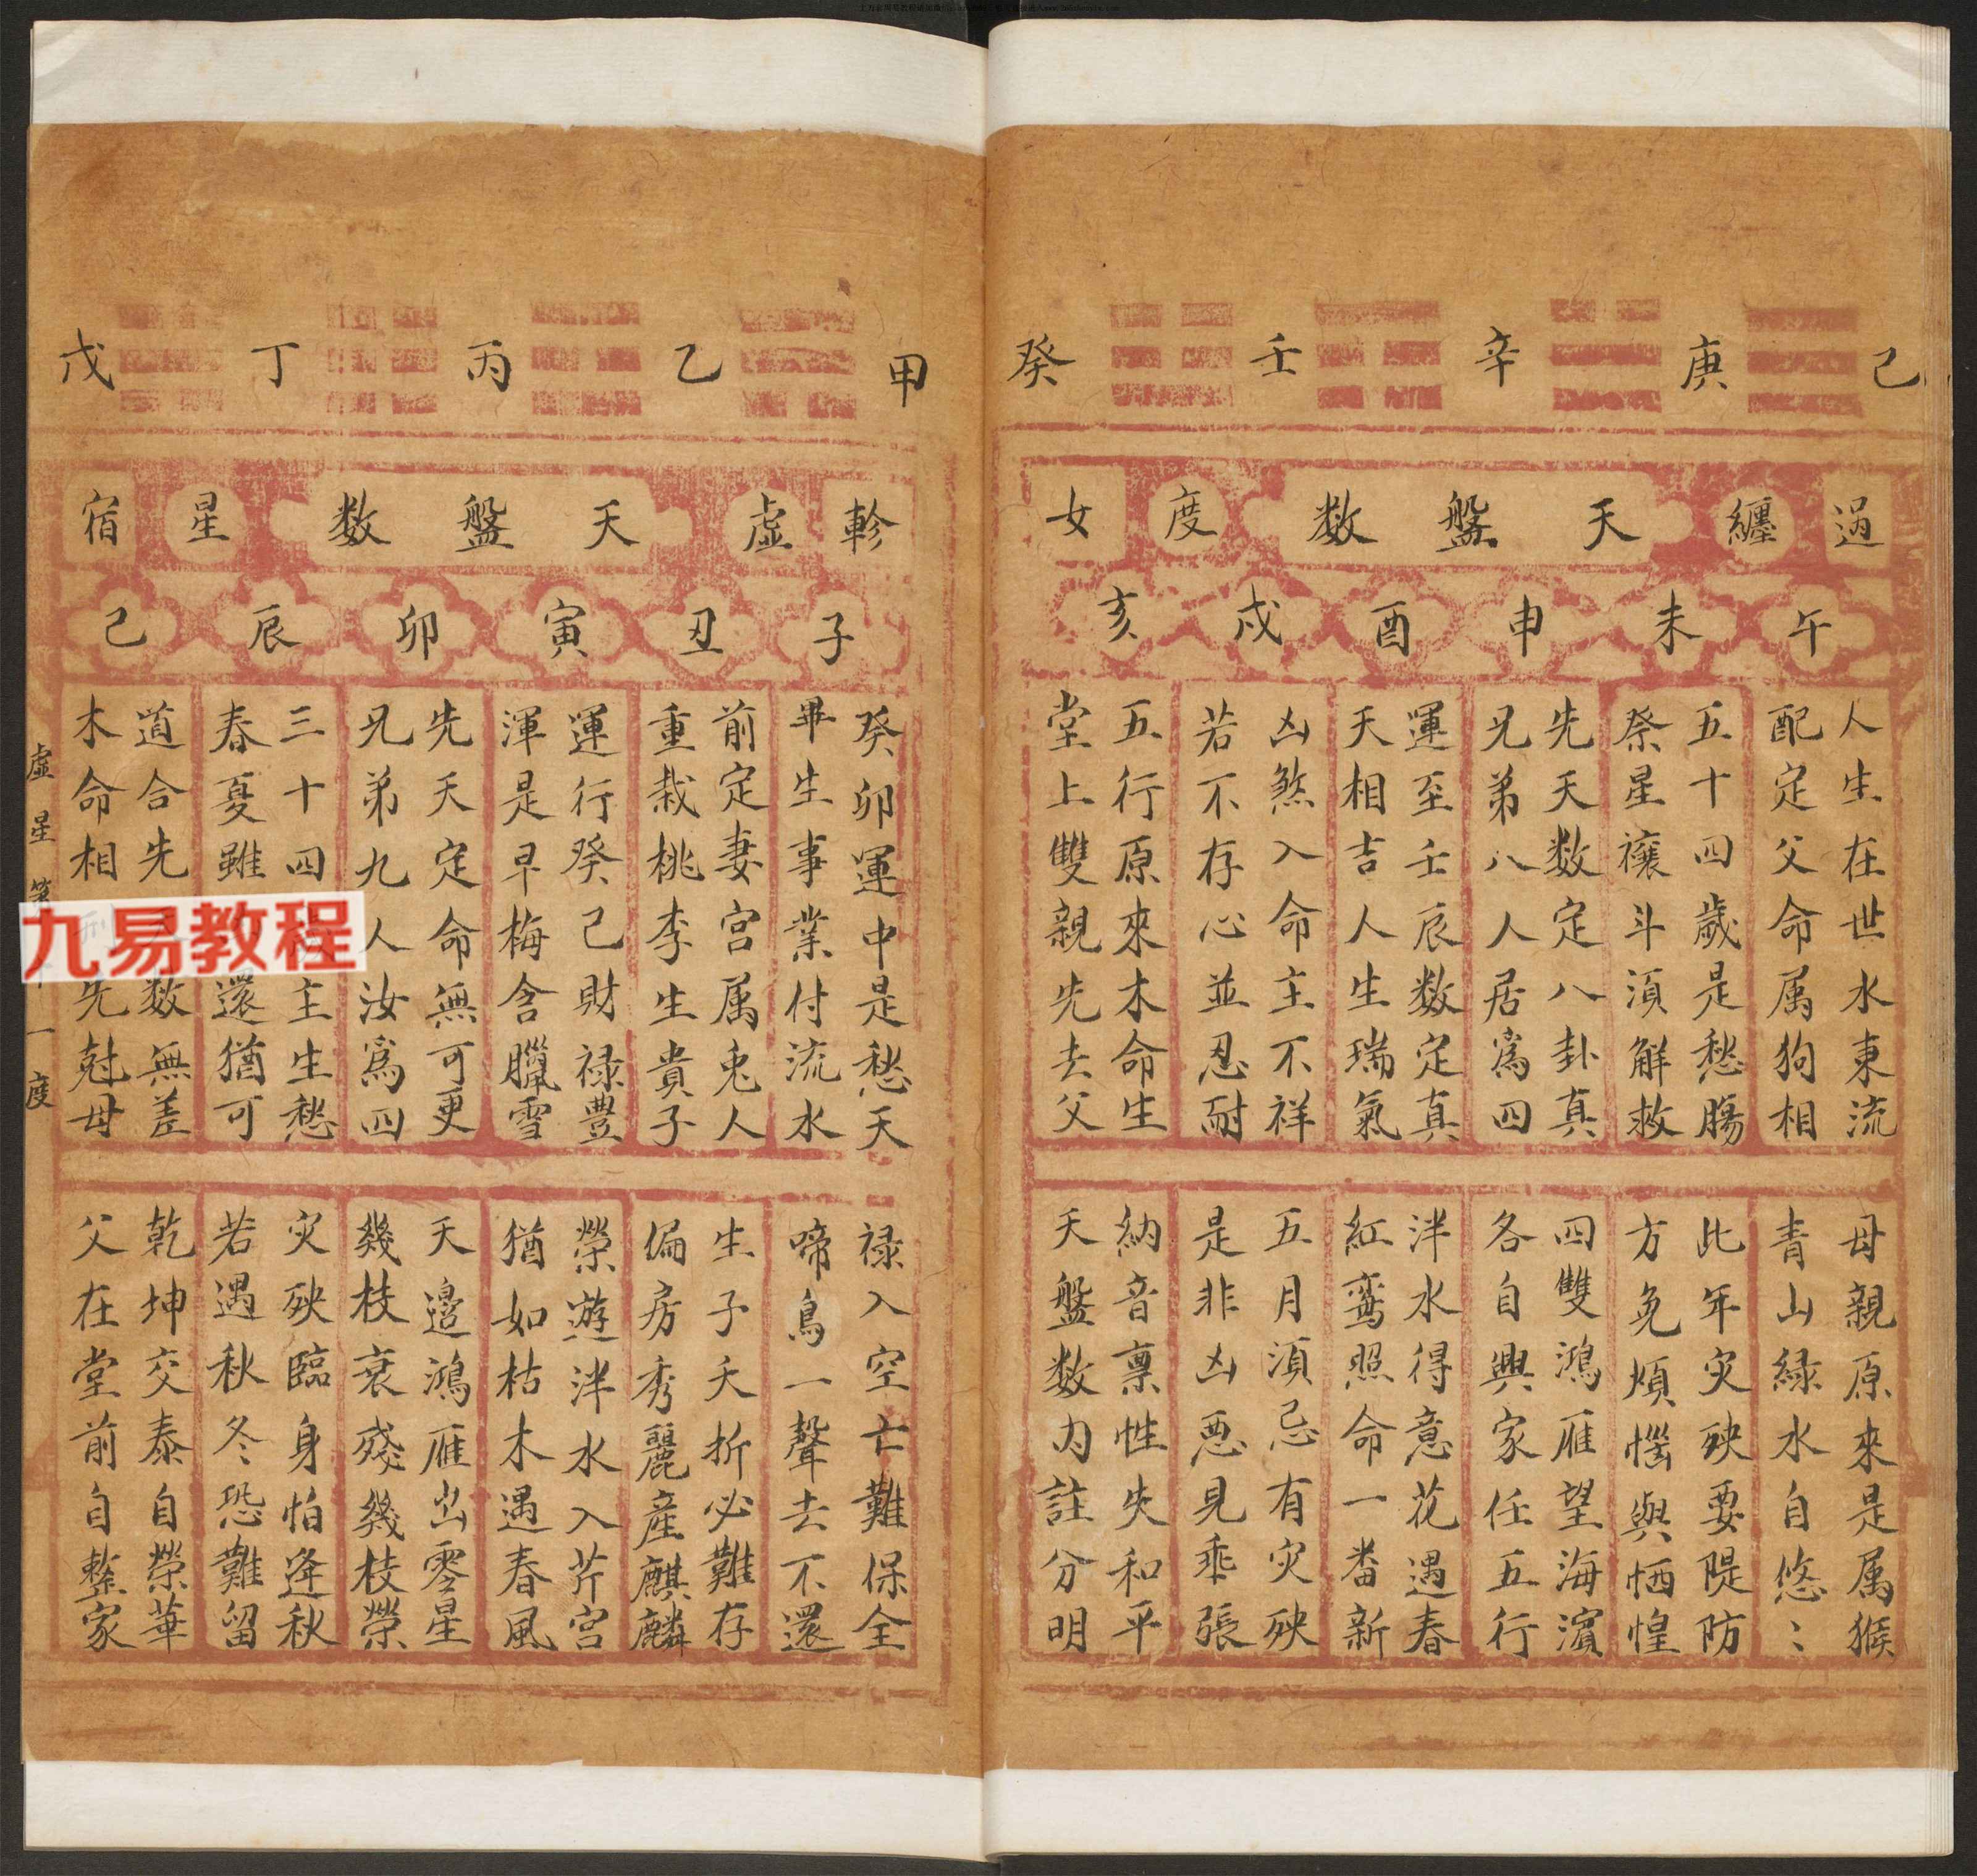 己 庚 辛 壬 癸
過 纏 天盤数 度 女
午 未 申 酉 戌 亥
人生在世水東流
配定父命属狗相
五十四歲是愁腸
祭星禳斗須解救
先天数定八卦真
兄弟八人居為四
運至壬辰数定真
天相吉人生瑞氣
凶煞入命主不祥
若不存心並忍耐
五行原來木命生
堂上雙親先去父
母親原來是属猴
青山緑水自悠〻
此年灾殃要隄防
方免煩惱與恓惶
四雙鴻雁望海濱
各自興家任五行
泮水得意花遇春
紅鸞照命一番新
五月須忌有灾殃
是非凶悪見乖張
納音禀性失和平
天盤数内註分明
甲 乙 丙 丁 戊
軫 虛 天盤数 星 宿
子 丑 寅 卯 辰 己
癸卯運中是愁天
畢生事業付流水
前定妻宮属兎人
重栽桃李生貴子
運行癸己財禄豊
渾是早梅含臘雪
先天定命無可更
兄弟九人汝為四
三十四 主生愁
春夏雖 還猶可
道合先 数無差
木命相 先尅母
禄入空亡難保全
啼鳥一聲去不還
生子夭折必難存
偏房秀麗産麒麟
榮遊泮水入芹宮
猶如枯木遇春風
天邉鴻雁出零星
幾枝衰殘幾枝榮
灾殃臨身怕逢秋
若遇秋冬恐難留
乾坤交泰自榮華
父在堂前自整家
虛星 一度
九易教程